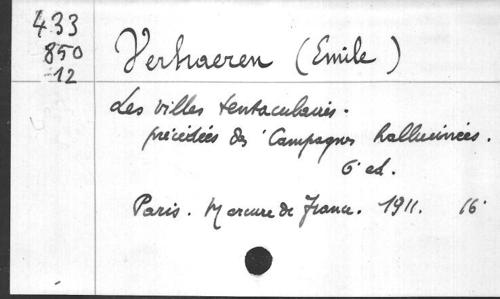 433
850
12
Verhaeren (Emile)
Les villes tentaculaires.
précédées des Campagnes hallucinées.
6 ed.
Paris. Mercure de France. 1911. 16